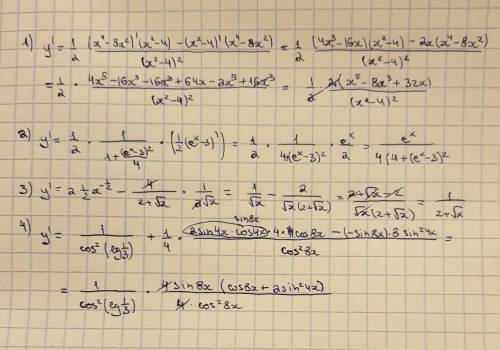 1) y' = 1/2 (x⁴-8x²)'(x²-4) - (x²-4)'(x⁴-8x²) / (x²-4)² = 1/2 (4x³-16x)(x²-4) - 2x(x⁴-8x²) / (x²-4)² =
= 1/2 · 4x⁵-16x³-16x³+64x-2x⁵+16x³ / (x²-4)² = 1/2 2(x⁵-8x³+32x) / (x²-4)²
2) y' = 1/2 · 1 / 1+(eˣ-3)²/4 · (1/2(eˣ-3)') = 1/2 · 1 / 4(eˣ-3)² · eˣ/2 = eˣ / 4(4+(eˣ-3)²
3) y' = 2 1/2 x^-1/2 - 4 / 2+√x · 1 / 2√x = 1/√x - 2 / √x(2+√x) = 2+√x-2 / √x(2+√x) = 1 / 2+√x
4) y' = 1 / cos²(lg 1/3) + 1/4 · sin8x 2sin4x·cos4x·4·cos8x - (-sin8x)·8 sin²4x / cos²8x =
= 1 / cos²(lg 1/3) · 4sin8x (cos8x + 2sin²4x) / 4·cos²8x